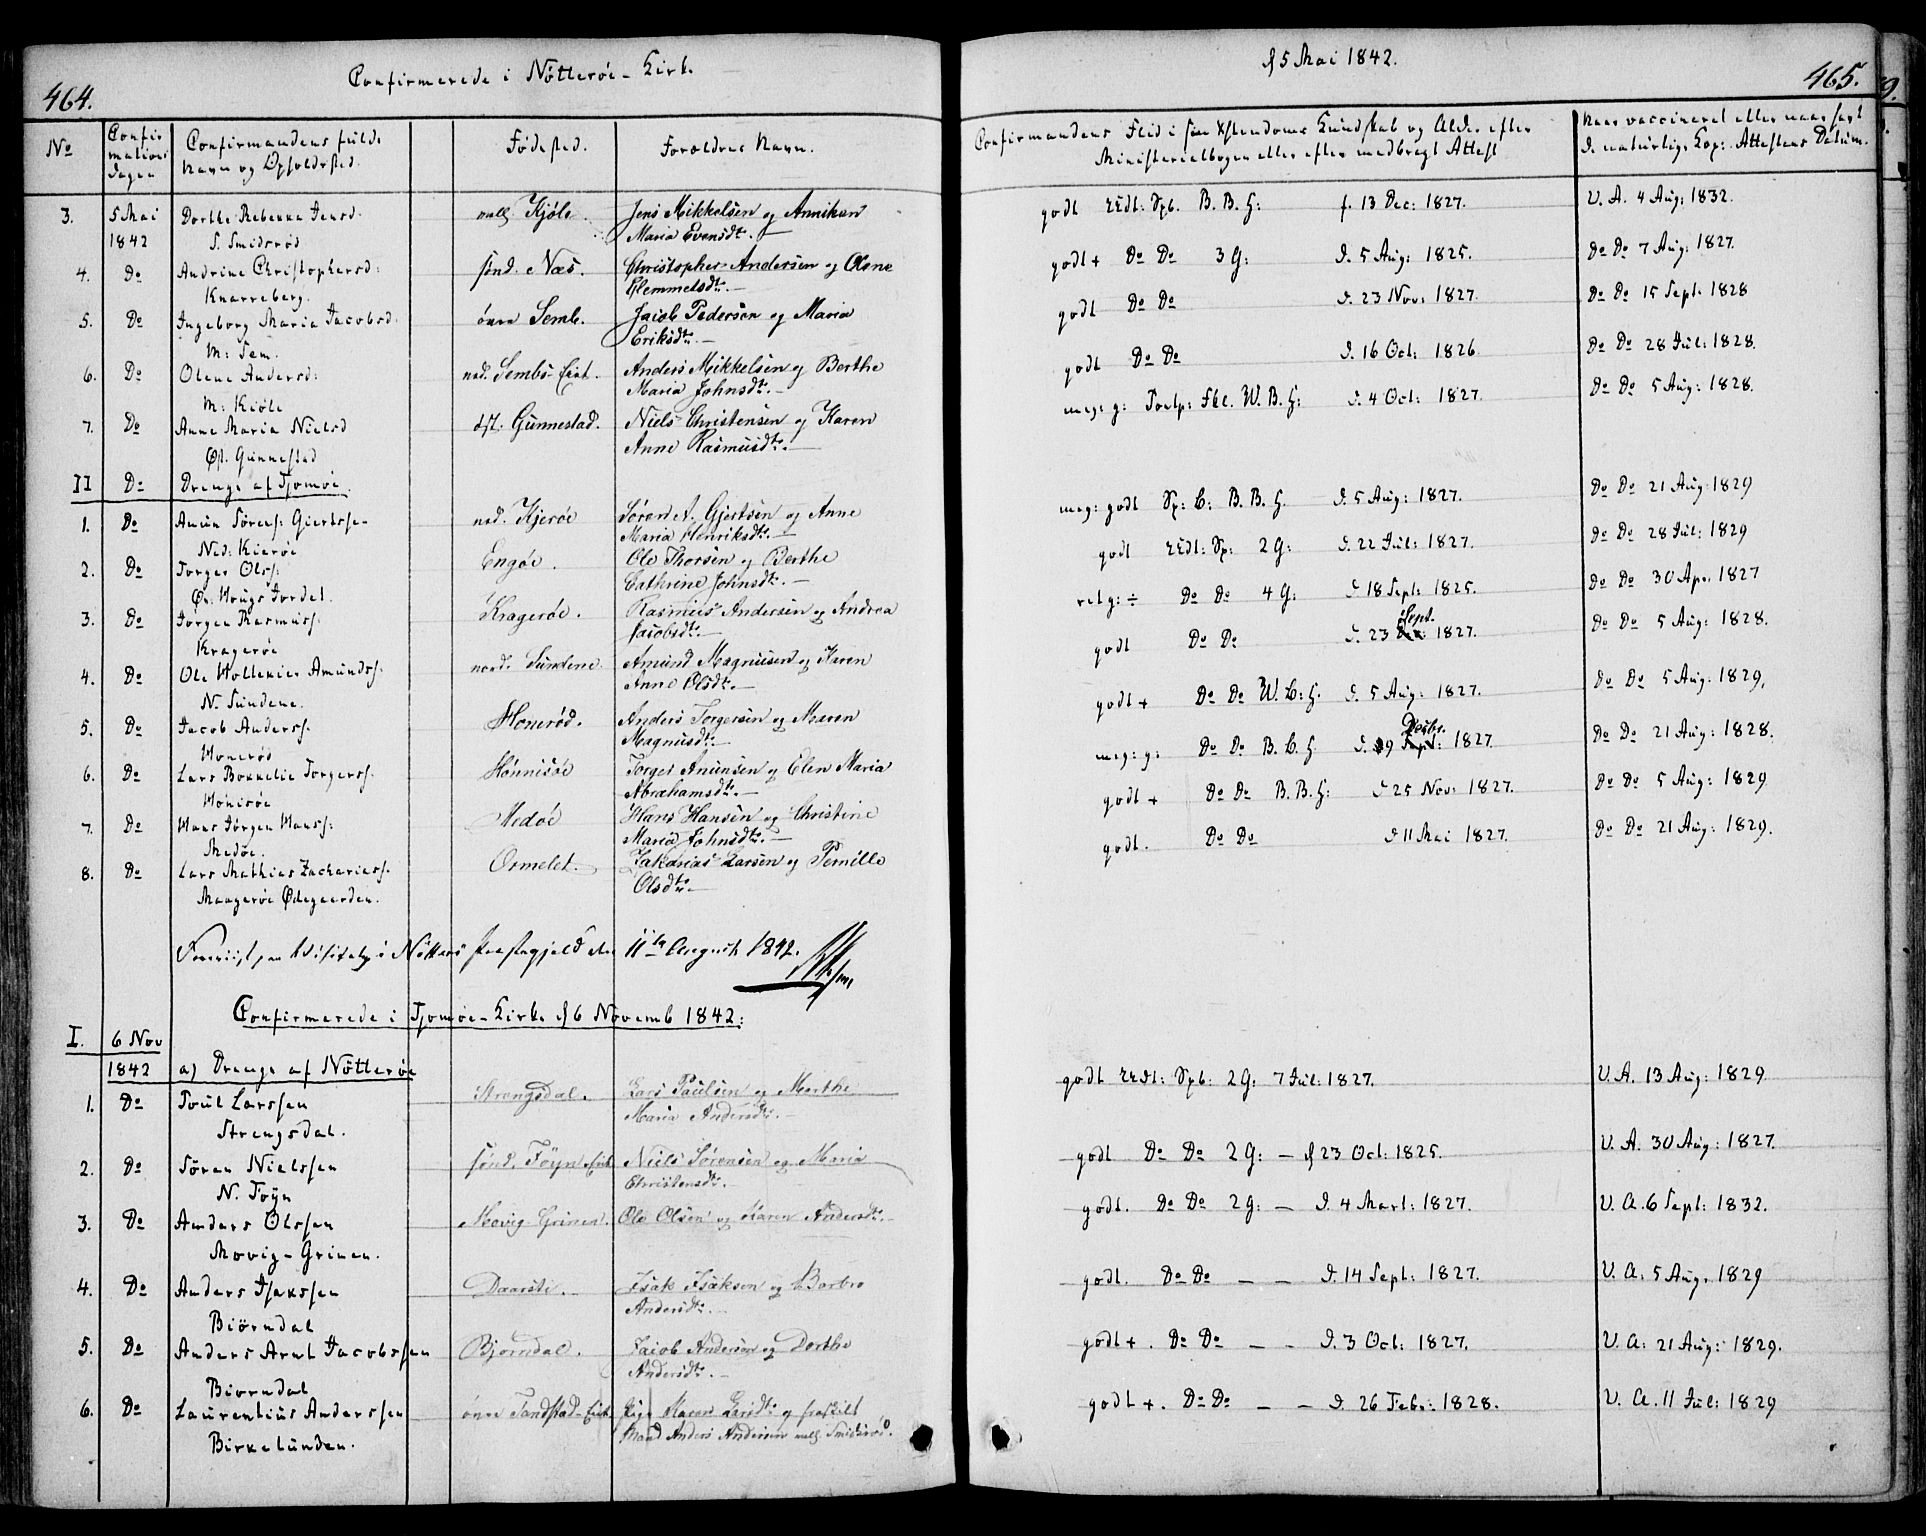 464.
Confirmerede i Nötteröe - Kirke
No
Confirmations Dagen
Confirmandens fulde Navn og Opholdssted.
Födested.
Forældres Navn.
3. 5 Mai 1842 Dorthe Rebekka Jensd. Kjöle. Jens Mikkelsen og Anniken
S. Smidsröd Maria Evensdt.
4. Do Andrine Christophersd: sönd. Næs. Christopher Andersen og Olene
Knarreberg. Clemmetsdt.
5. Do Ingeborg Maria Jacobsd. övre Semb. Jacob Pedersen og Maria
M: Sem. Eriksdt.
6. Do Olene Andersd: ned. Sembs-Eiet. Anders Mikkelsen og Berthe
M: Kiöle Maria Johnsdt.
7. Do Anne Maria Nielsd öst. Gunnestad. Niels Christensen og Karen
Öst. Gunnestad Anne Rasmusdt.
II Do Drenge af Tjömöe.
1. Do Amun Sörens: Giertsse- ned. Kjeröe Sören A. Gjertsen og Anne
Ned: Kieröe Maria Henriksdt.
2. Do Torger Olss: Engöe. Ole Thorsen og Berthe
Öv. Hougs Jordet. Cathrine Johnsdt.
3. Do Jörgen Rasmuss. Krageröe. Rasmus Andersen og Andrea
Krageröe Jacobsdt.
4. Do Ole Mollenius Amundss. nord. Sundene. Amund Magnusen og Karen
N. Sundene. Anne Olsdt.
5. Do Jacob Anderss. Honeröd. Anders Torgersen og Maren
Honeröd Magnusdt.
6. Do Lars Bonnelie Torgerss. Hönnisöe Torger Anunsen og Elen Maria
Hönisöe Abrahamsdt.
7. Do Hans Jörgen Hanss: Medöe Hans Hansen og Christine
Medöe. Maria Johnsdt.
8. Do Lars Mathias Zachariass. Ormelet. Zakarias Larsen og Pernille
Maageröe Ödegaarden. Olsdt.
Foreviist paa Visitats i Nötterö Præstegjeld den 11te August 1842.
Confirmerede i Tjömöe - Kirke d 6 Novemb 1842:
I. 6 Nov
1842 a) Drenge af Nötteröe
1. Do Poul Larssen Strengsdal. Lars Paulsen og Marthe
Strengsdal. Maria Andersdt.
2. Do Sören Nielssen sönd. Föyn eiet Niels Sörensen og Maria
N. Föyn Christensdt.
3. Do Anders Olssen Movig-Grinen. Ole Olsen og Karen Andersdt.
Movig-Grinen.
4. Do Anders Isakssen Daarsti. Isak Isaksen og Barbro
Biörndal Andersdt.
5. Do Anders Arnt Jacobssen Bjorndal. Jacob Andersen og Dorthe
Biorndal Andersdt.
6. Do Laurentius Anderssen övre Tandstad-Eiet Pige Maren Larsdt. og fraskilt
Birkelunden. Mand Anders Andersen mell. Smidsröd.
d 5 Mai 1842.
465.
Confirmandens Flid i sin Xstendoms Kundskab og Alder efter
Ministerialbogen eller efter medbragt Attest
Naar vaccineret eller naar havt
d. naturlige Kop: Attestens Datum.
godt Redl: Spb. B. B. H: f. 13 Dec: 1827. V. A. 4 Aug: 1832.
godt + Do Do 3 G: d. 5 Aug: 1825. Do Do 7 Aug: 1827.
godt Do Do d. 23 Nov: 1827. Do Do 15 Sept. 1828
godt Do Do d. 16 Oct: 1826. Do Do 28 Jul: 1828.
meg: g: W. B. H: d. 4 Oct: 1827. Do Do 5 Aug: 1828.
meg: godt Sp: B. B. H. d. 5 Aug: 1827. Do Do 21 Aug: 1829
godt Redl: Sp: 2 G: d. 22 Jul: 1827. Do Do 28 Jul: 1829
ret g: ÷ Do Do 4 G: d 18 Sept: 1825. Do Do 30 Apr. 1827
godt Do Do d. 23 Sept. 1827. Do Do 5 Aug: 1828.
godt + Do Do W. B: H. d. 5 Aug: 1827. Do Do 5 Aug: 1829,
meg: g: Do Do B. B. H. d. 9 Decbr. 1827 Do Do 21 Aug: 1828.
godt + Do Do B. B. H: d 25 Nov: 1827. Do Do 5 Aug: 1829
godt. Do Do d 11 Mai 1827. Do Do 21 Aug: 1829.
godt Redl: Spb: 2 G: 7 Jul: 1827. V. A. 13 Aug: 1829.
godt Do Do 2 G: - d 23 Oct: 1825. V. A. 30 Aug: 1827.
godt. Do Do 2 G: - d. 4 Mart: 1827. V. A. 6 Sept: 1832.
godt. Do Do - - d. 14 Sept: 1827. V. A: 5 Aug. 1829
godt +. Do Do - - d. 3 Oct: 1827. V. A: 21 Aug: 1829.
godt +. Do Do - - d. 26 Febr: 1828. V. A. 11 Jul: 1829